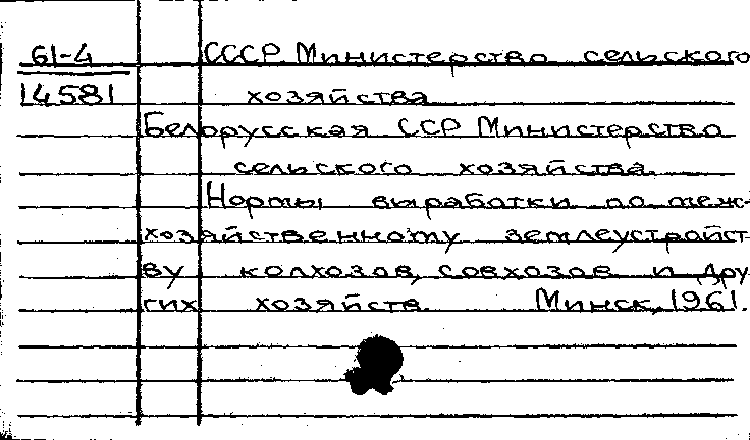 61-4 СССР Министерство сельского
14581 хозяйства
Белорусская ССР Министерство
сельского хозяйства.
Нормы выработки по меж-
хозяйственному землеустройст
ву колхозов, совхозов и дру
гих хозяйств. Минск, 1961.